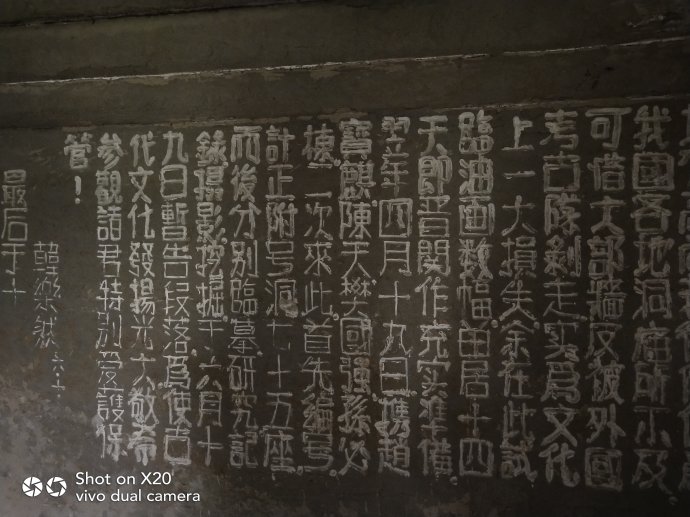 我國各地洞廟所不及
可惜大部墻皮被外國
考古隊剝走实爲文化
上一大損失余在此試
臨油画数幅留居十四
天即晋関作充实准備
翌年四月十九日携趙
寶麒陳天樊國强孫必
棟二次來此首先編号
計正附号洞七十五座
而後分别臨摹研究記
錄攝影挖掘于六月十
九日暫告段落爲使古
代文化發揚光大敬希
參觀諸君特别愛護保
管！
韓樂然 六.十.
最后于十
Shot on X20
vivo dual camera